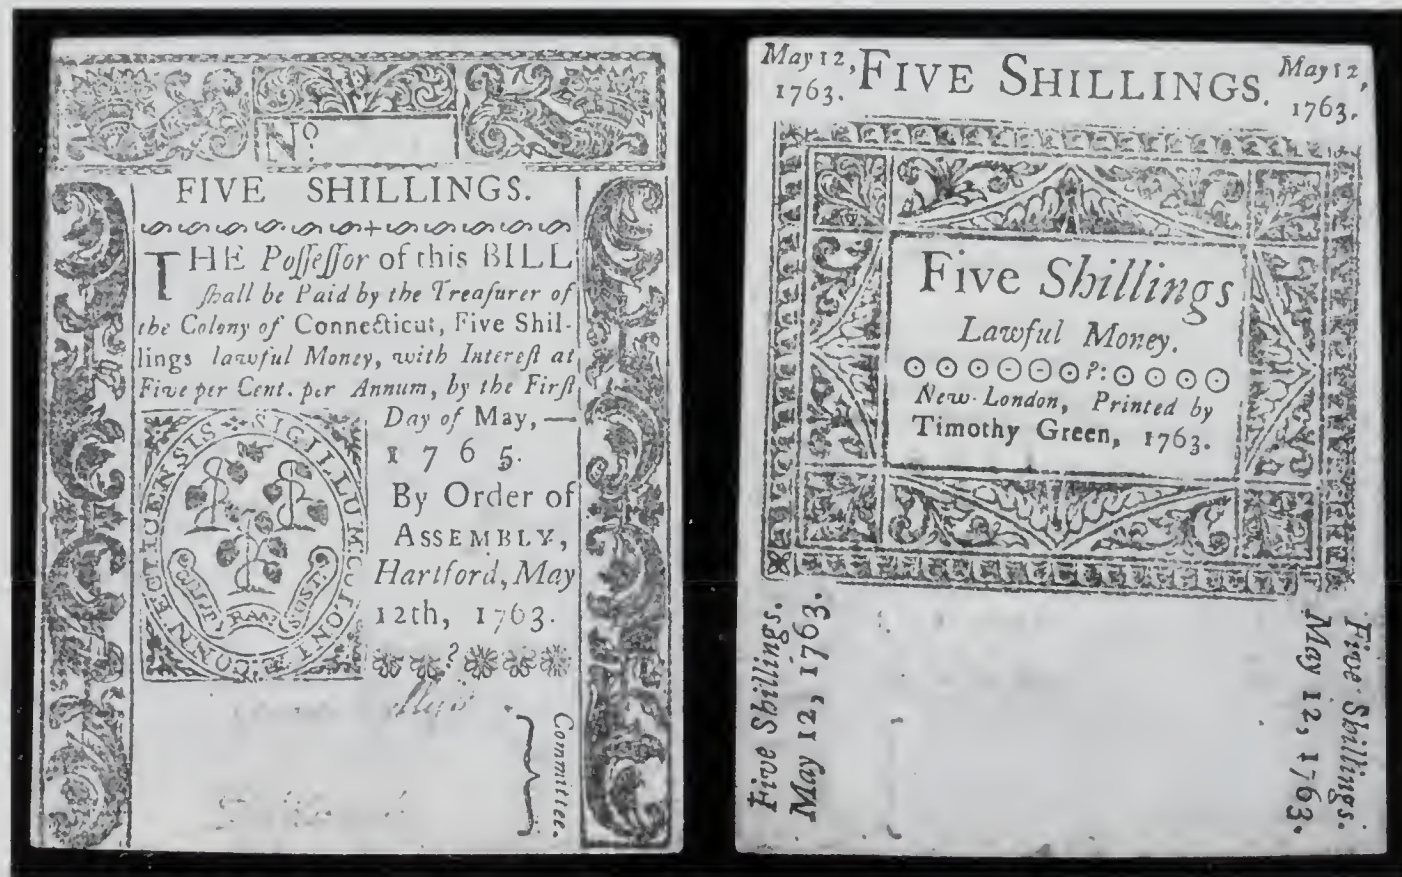 No.
FIVE SHILLINGS.
THE Poſſeſſor of this BILL
ſhall be Paid by the Treaſurer of
the Colony of Connecticut, Five Shil-
lings lawful Money, with Intereſt at
Five per Cent. per Annum, by the Firſt
Day of May, —
1 7 6 5.
By Order of
ASSEMBLY,
Hartford, May
12th, 1763.
SIGILLUM: COLONIÆ: CONNECTICUENSIS
QUI TRAN SUST.
Committee.
May 12, 1763.
FIVE SHILLINGS.
May 12, 1763.
Five Shillings
Lawful Money.
New-London, Printed by
Timothy Green, 1763.
Five Shillings.
May 12, 1763.
Five Shillings.
May 12, 1763.